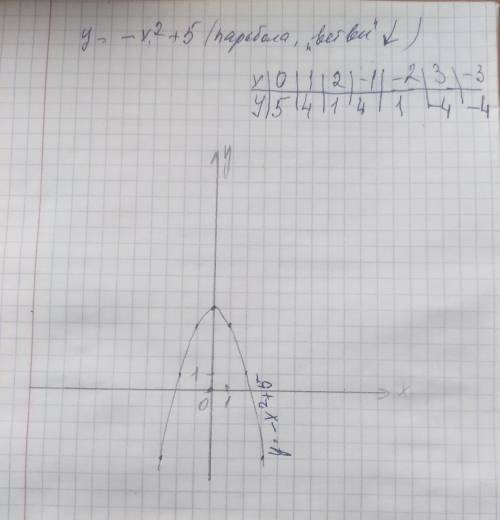 y = -x² + 5 (парабола, "ветви" ↓)
x | 0 | 1 | 2 | -1 | -2 | 3 | -3
y | 5 | 4 | 1 | 4 | 1 | -4 | -4
y
1
0 1 x
y = -x² + 5